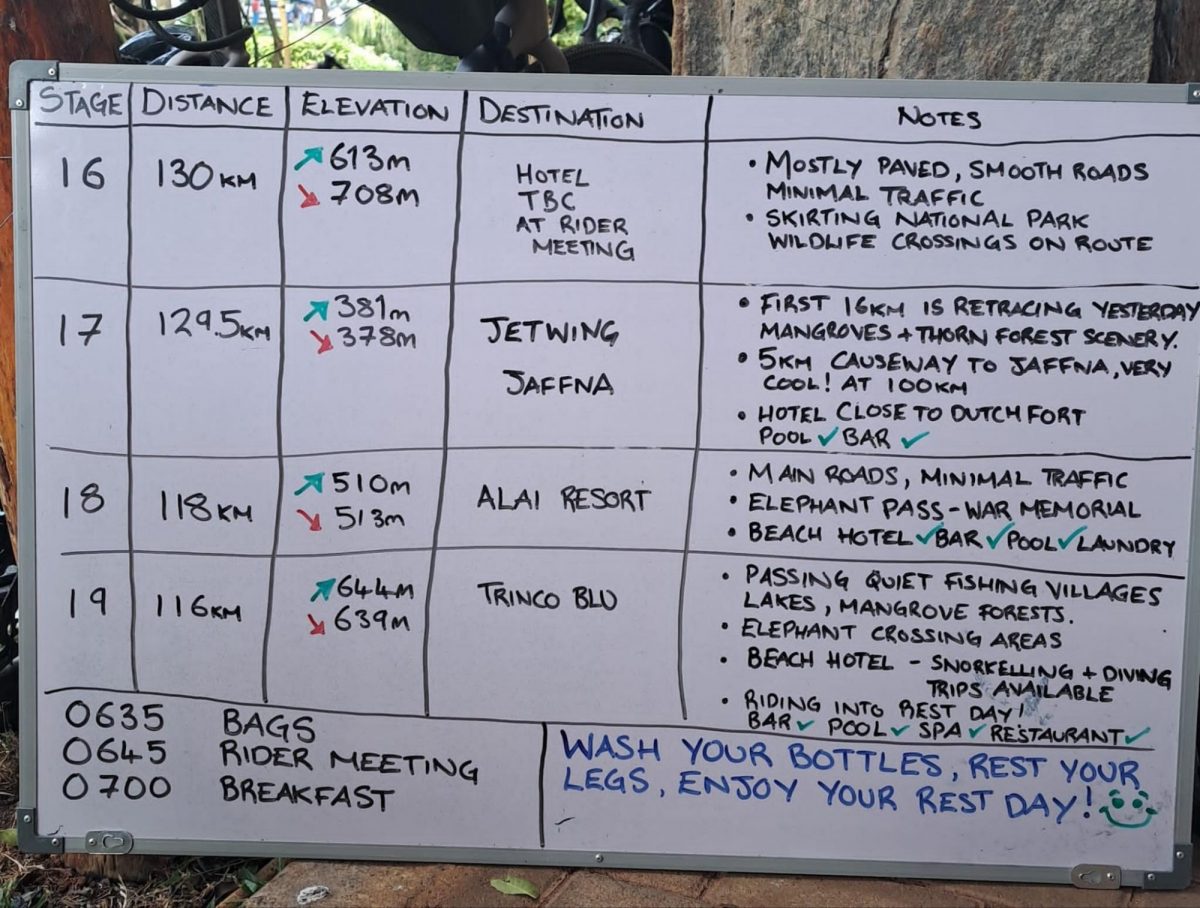 STAGE DISTANCE ELEVATION DESTINATION NOTES
16 130KM ↗613m ↘708m
HOTEL
TBC
AT RIDER
MEETING
• MOSTLY PAVED, SMOOTH ROADS
MINIMAL TRAFFIC
• SKIRTING NATIONAL PARK
WILDLIFE CROSSINGS ON ROUTE
17 129.5KM ↗381m ↘378m
JETWING
JAFFNA
• FIRST 16KM IS RETRACING YESTERDAY
MANGROVES + THORN FOREST SCENERY.
• 5KM CAUSEWAY TO JAFFNA, VERY
COOL! AT 100KM
• HOTEL CLOSE TO DUTCH FORT
POOL ✓ BAR ✓
18 118KM ↗510m ↘513m
ALAI RESORT
• MAIN ROADS, MINIMAL TRAFFIC
• ELEPHANT PASS - WAR MEMORIAL
• BEACH HOTEL ✓ BAR ✓ POOL ✓ LAUNDRY
19 116KM ↗644m ↘639m
TRINCO BLU
• PASSING QUIET FISHING VILLAGES
LAKES, MANGROVE FORESTS.
• ELEPHANT CROSSING AREAS
• BEACH HOTEL - SNORKELLING + DIVING
TRIPS AVAILABLE
• RIDING INTO REST DAY!
BAR ✓ POOL ✓ SPA ✓ RESTAURANT ✓
0635 BAGS
0645 RIDER MEETING
0700 BREAKFAST
WASH YOUR BOTTLES, REST YOUR
LEGS, ENJOY YOUR REST DAY!